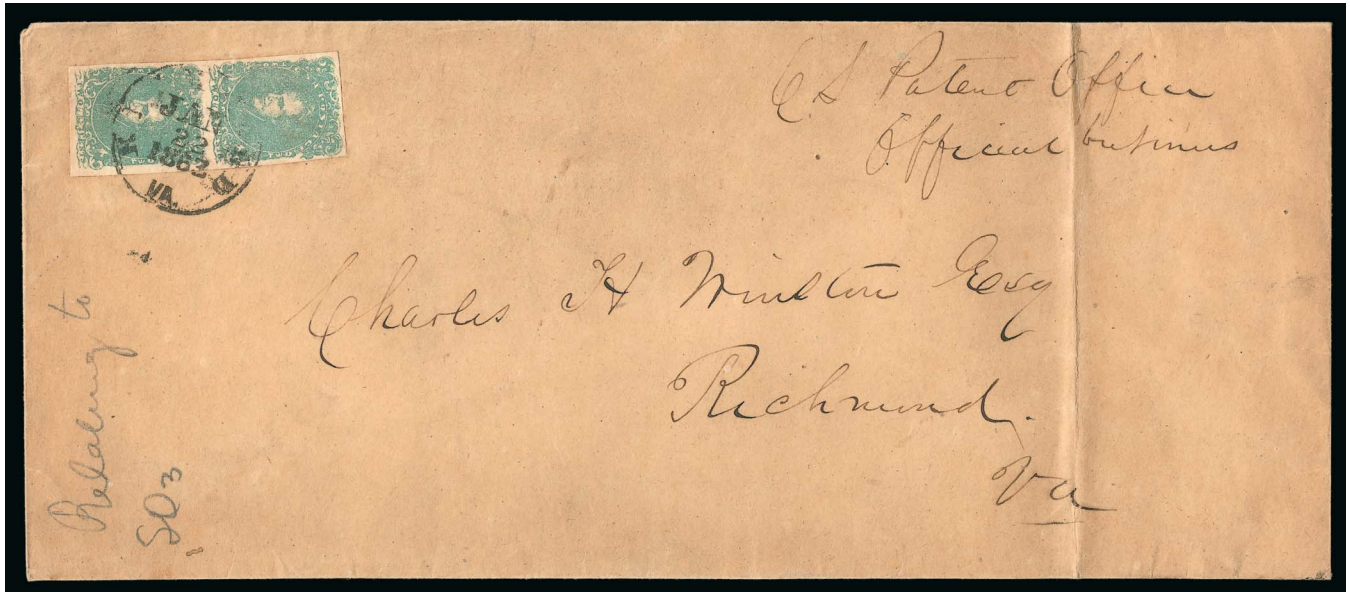 C S Patent Office
Official business
JAN
22
1862
VA.
Charles H Winston Esq
Richmond.
Va
Relating to
SO3